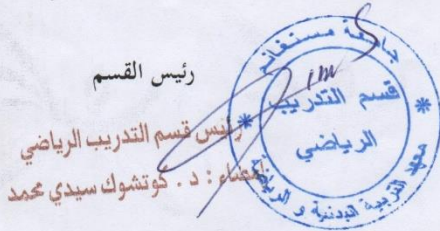 رئيس القسم
رئيس قسم التدريب الرياضي
إمضاء : د . كوتشوك سيدي محمد
جامعة مستغانم
قسم التدريب
الرياضي
معهد التربية البدنية و الرياضية